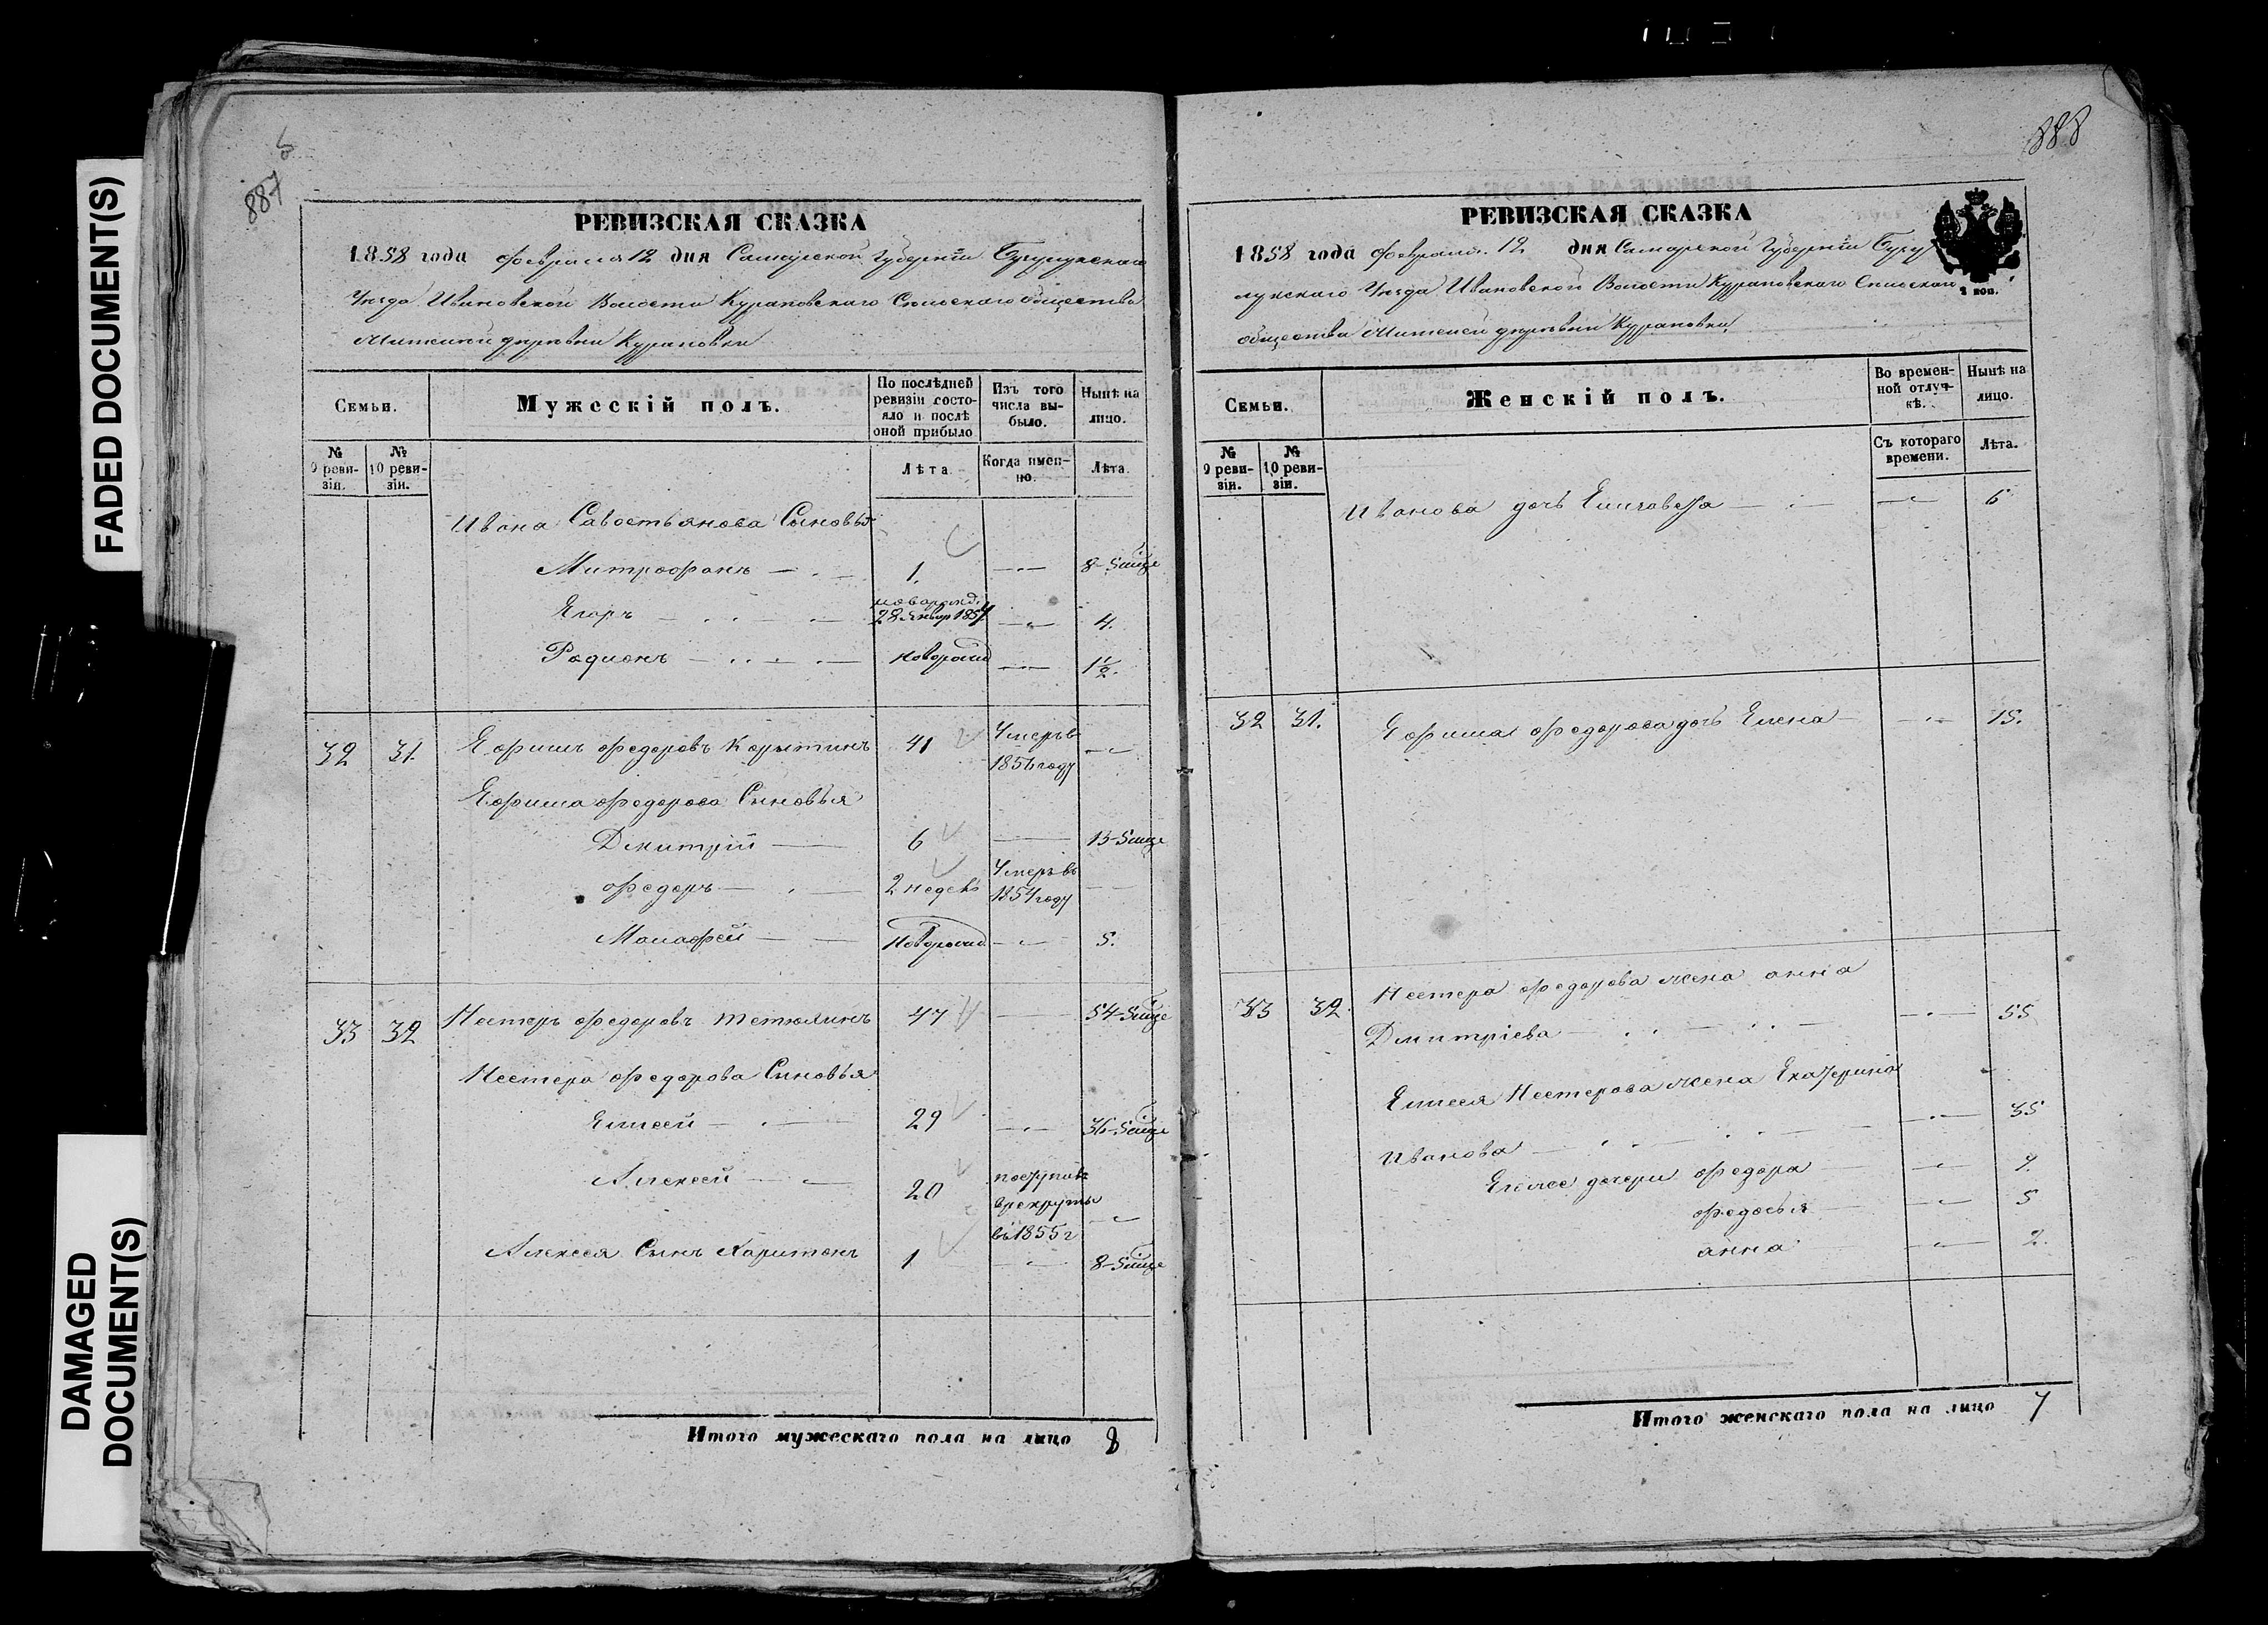 FADED DOCUMENT(S)
DAMAGED
DOCUMENT(S)
887
РЕВИЗСКАЯ СКАЗКА
1858 года февраля 12 дня Самарской Губерніи Бугурусланскаго
Уѣзда Ивановской Волости Курановскаго Сельскаго общества
Жителей деревни Курановки
Семьи.
Мужескій полъ.
По послѣдней ревизіи состояло и послѣ оной прибыло
Изъ того числа выбыло.
Нынѣ на лицо.
№ 9 ревизіи.
№ 10 ревизіи.
Лѣта
Когда именно.
Лѣта.
Ивана Савостьянова Сыновья
Митрофанъ 1. 8
Егоръ новорожд. 28 Январ 1854 4.
Родионъ новорожд 1½.
32 31. Ефимъ Федоровъ Корытинъ 41 Умеръ в 1856 году
Ефима Федорова Сыновья
Дмитрій 6 13
Федоръ 2 недель Умеръ въ 1854 году
Малафей новорожд. 5.
33 32 Нестеръ Федоровъ Тетюлинъ 47 54
Нестера Федорова Сыновья
Елисей 29 36
Алексей 20 поступилъ в рекруты въ 1855 г
Алексея Сынъ Харитонъ 1 8
Итого мужескаго пола на лицо 8
888
РЕВИЗСКАЯ СКАЗКА
1858 года февраля 12 дня Самарской Губерніи Бугу
русланскаго Уѣзда Ивановской Волости Курановскаго Сельскаго
общества Жителей деревни Курановки
Семьи.
Женскій полъ.
Во временной отлучкѣ.
Нынѣ на лицо.
№ 9 ревизіи.
№ 10 ревизіи.
Съ котораго времени.
Лѣта.
Иванова дочь Елизавета 6
32 31. Ефима Федорова дочь Елена 15.
33 32. Нестера Федорова жена анна
Дмитріева 55
Елисея Нестерова жена Екатерина
Иванова 35
Елисее дочери Федора 9.
Федосья 5
анна 2.
Итого женскаго пола на лицо 7